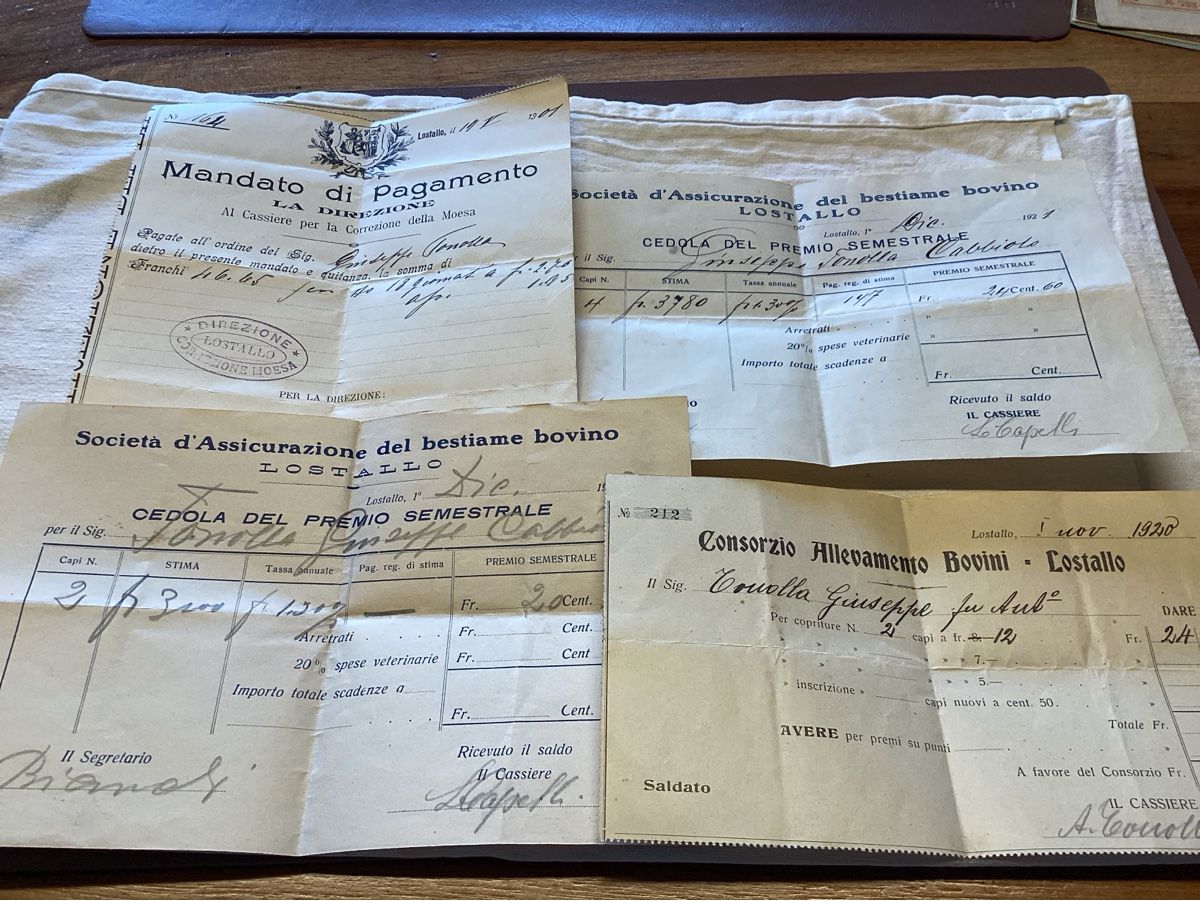 Nº 164
Lostallo, il 19 V 1901
Mandato di Pagamento
LA DIREZIONE
Al Cassiere per la Correzione della Moesa
Pagate all'ordine del Sig. Giuseppe Tonolla
dietro il presente mandato e quitanza, la somma di
Franchi 46.45
DIREZIONE
LOSTALLO
CORREZIONE MOESA
PER LA DIREZIONE:
Società d'Assicurazione del bestiame bovino
LOSTALLO
Lostallo, 1º Dic. 1921
CEDOLA DEL PREMIO SEMESTRALE
per il Sig. Giuseppe Tonolla Cabbiolo
Capi N. STIMA Tassa annuale Pag. reg. di stima PREMIO SEMESTRALE
4 fr. 3780 147 Fr. 24 Cent. 60
" "
" "
Arretrati
20% spese veterinarie
Importo totale scadenze a
Fr. Cent.
Ricevuto il saldo
IL CASSIERE
Capelli
Società d'Assicurazione del bestiame bovino
LOSTALLO
Lostallo, 1º Dic.
CEDOLA DEL PREMIO SEMESTRALE
per il Sig. Tonolla Giuseppe
Capi N. STIMA Tassa annuale Pag. reg. di stima PREMIO SEMESTRALE
2 — Fr. 20 Cent.
Arretrati Fr. Cent.
20% spese veterinarie Fr. Cent
Importo totale scadenze a
Fr. Cent.
Il Segretario
Ricevuto il saldo
Il Cassiere
Capelli
Nº 212
Lostallo, 1 nov. 1920
Consorzio Allevamento Bovini - Lostallo
Il Sig. Tonolla Giuseppe fu Antº
DARE
Per copriture N. 2 capi a fr. 8.- 12 Fr. 24
" " " " 7.— "
" " " " 5.— "
" inscrizione " capi nuovi a cent. 50. "
Totale Fr.
AVERE per premi su punti "
A favore del Consorzio Fr.
Saldato
IL CASSIERE